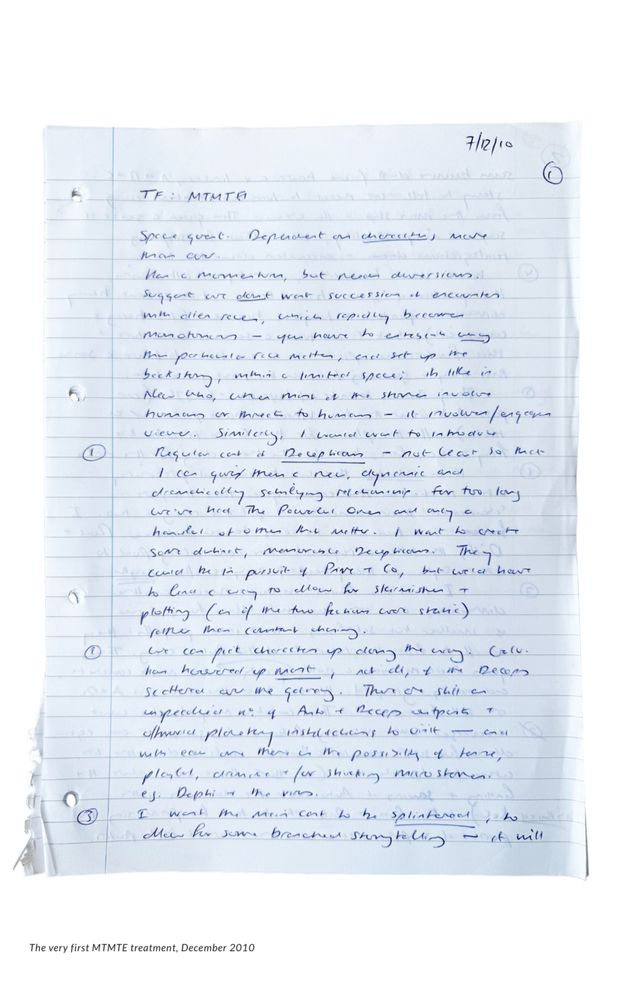 7/12/10
1
TF: MTMTE
Space quest. Dependent on characters, more
than ever.
Has a momentum, but needs diversions.
Suggest we don't want succession of encounters
with alien races, which rapidly becomes
monotonous – you have to establish why
this particular race matters, and set up the
backstory, within a limited space; it's like in
New Who, where most of the stories involve
humans or threats to humans – it involves/engages
viewer. Similarly, I would want to introduce
1 Regular cast of Decepticons – not least so that
I can give them a new, dynamic and
dramatically satisfying relationship. For too long
we've had The Powerful Ones and only a
handful of others that matter. I want to create
some distinct, memorable Decepticons. They
could be in pursuit of Prime + Co, but we'd have
to find a way to allow for skirmishes +
plotting (as if the two factions were static)
rather than constant chasing.
2 We can pick characters up along the way. Galv.
has hoovered up most, not all, of the Deceps
scattered over the galaxy. There are still an
unspecified no. of Auto + Decep outposts +
offworld planetary installations to visit – and
with each one there is the possibility of tense,
playful, dramatic + /or shocking microstories.
eg. Delphi + the virus.
3 I want the main cast to be splintered, to
allow for some branched storytelling – it will
The very first MTMTE treatment, December 2010